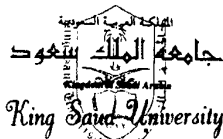 المملكة العربية السعودية
جامعة الملك سعود
Kingdom of Saudi Arabia
King Saud University